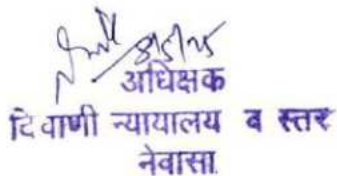 8/5/25
अधिक्षक
दिवाणी न्यायालय व स्तर
नेवासा